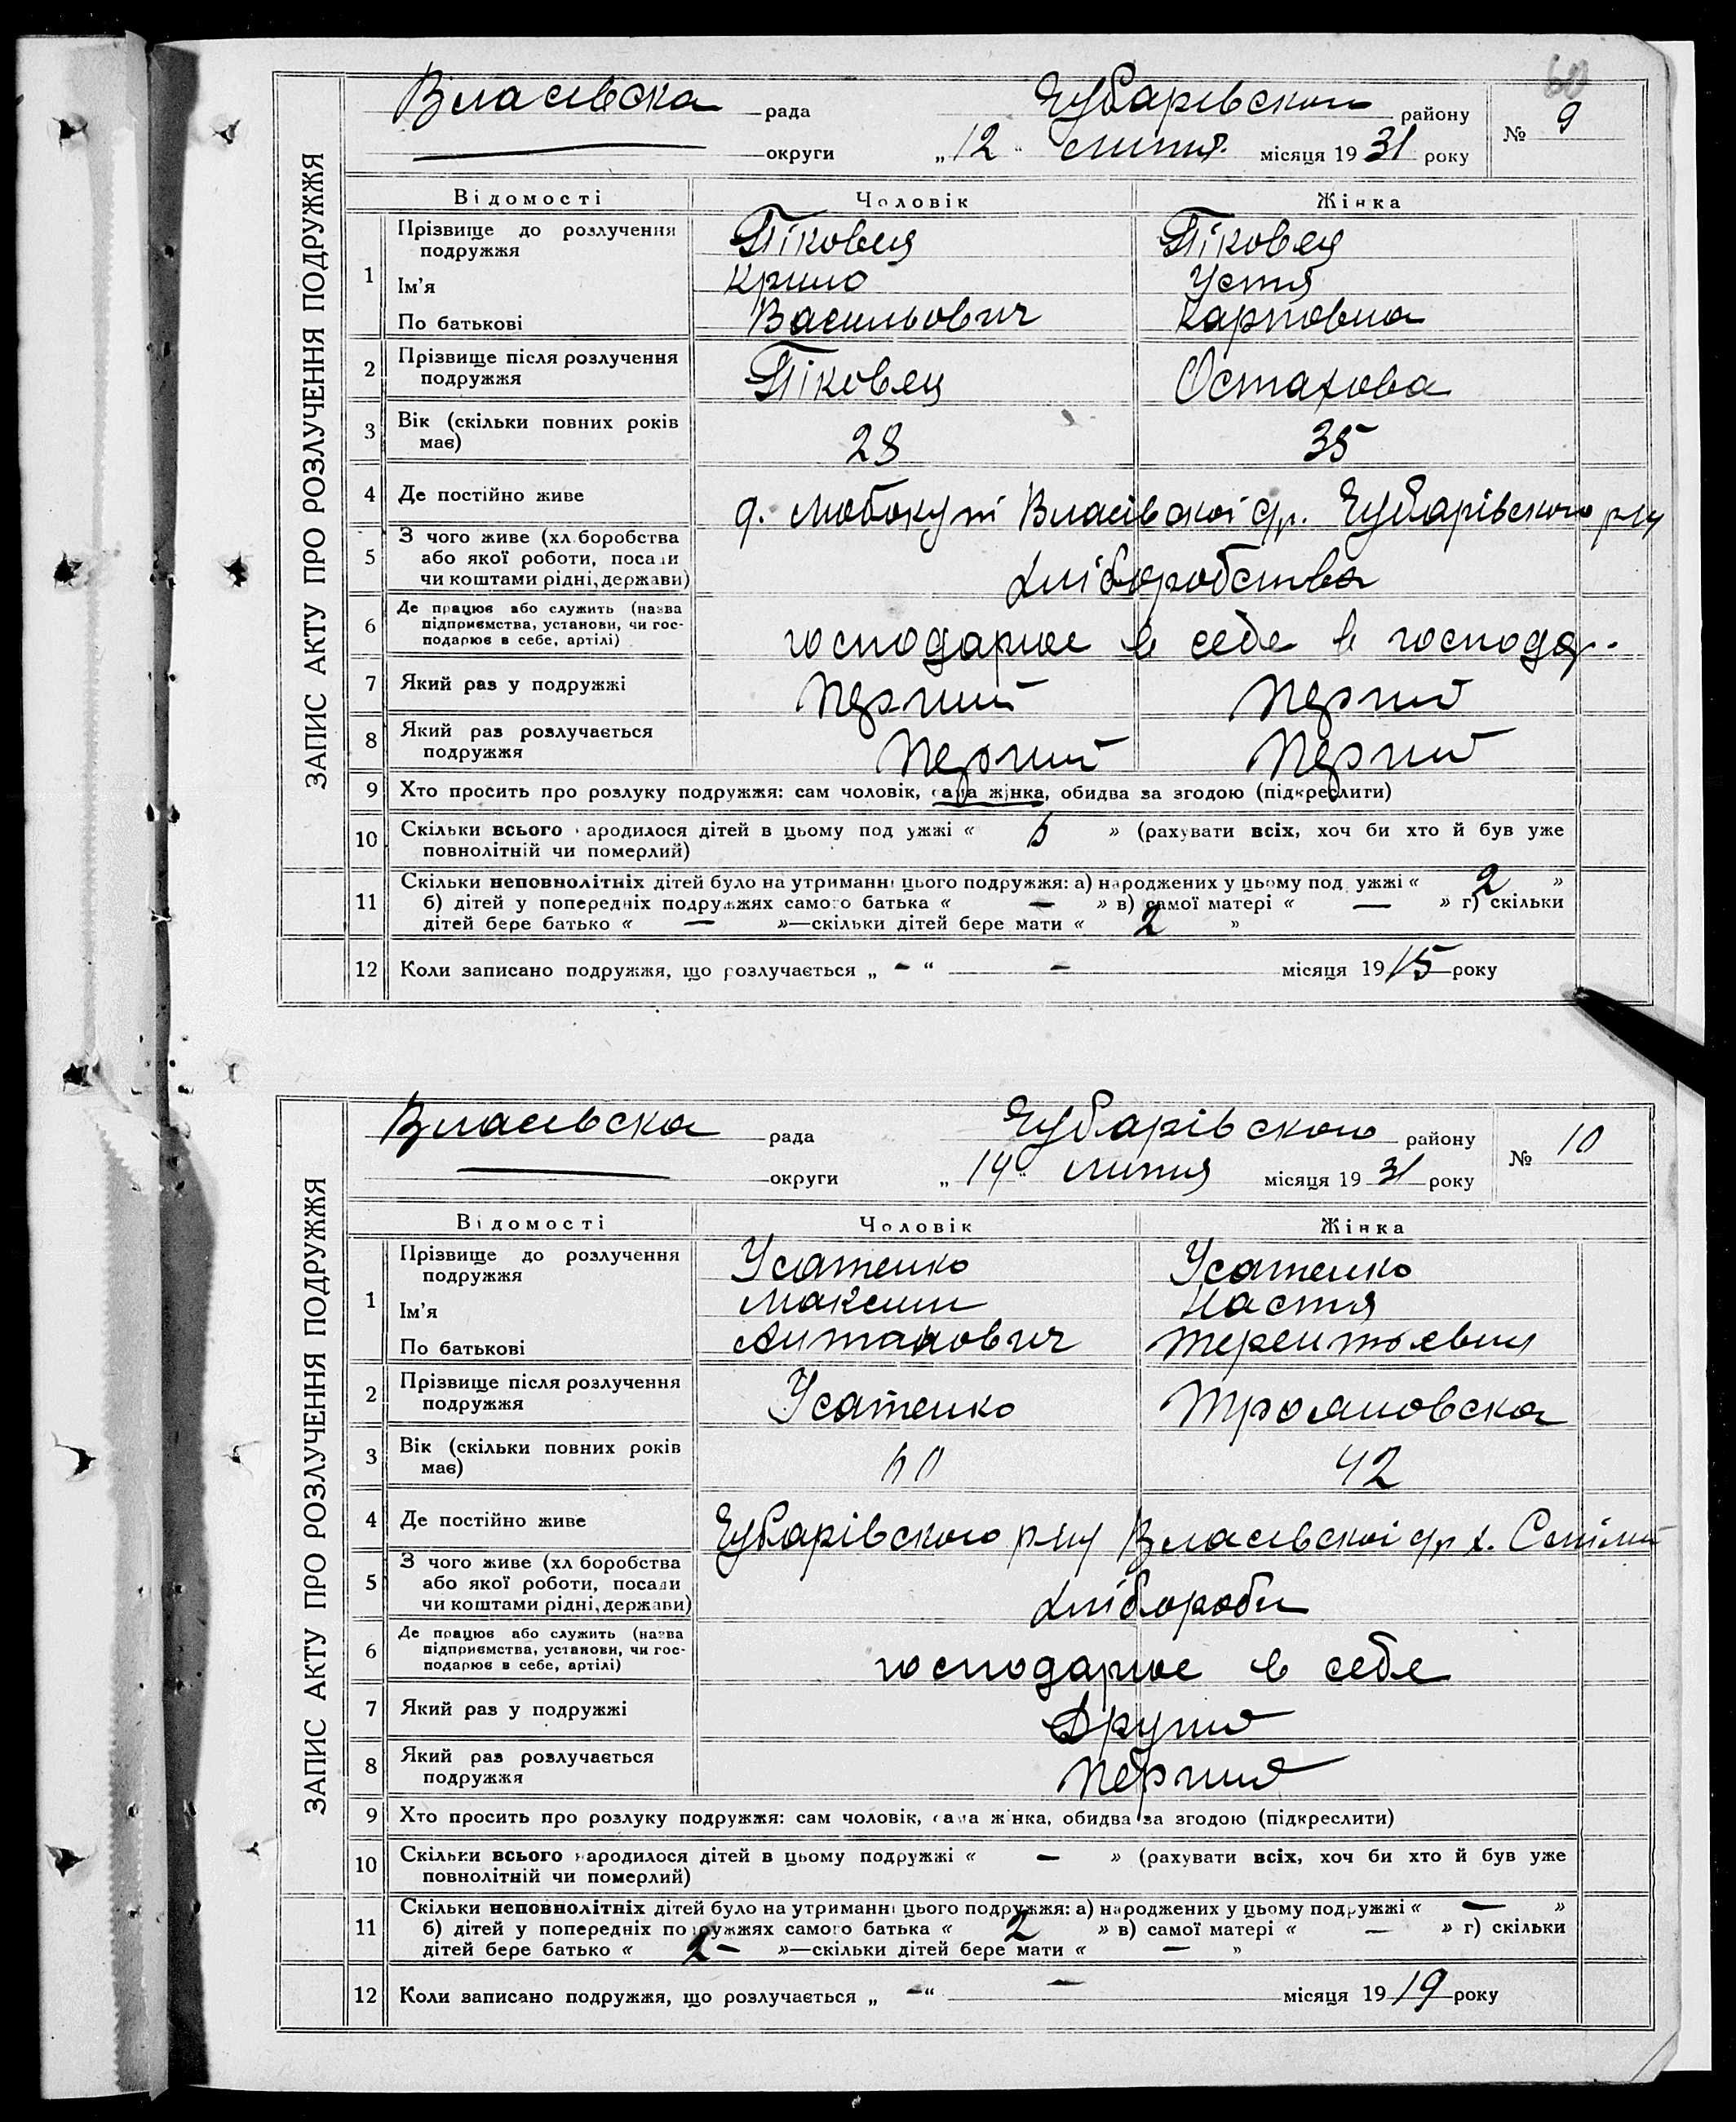 60
ЗАПИС АКТУ ПРО РОЗЛУЧЕННЯ ПОДРУЖЖЯ
Власівска рада Чубарівского району № 9
округи „12“ липня місяця 1931 року
Відомості Чоловік Жінка
1 Прізвище до розлучення подружжя Піковец Піковец
Ім'я Крило Устя
По батькові Васильович Карповна
2 Прізвище після розлучення подружжя Піковец Остахова
3 Вік (скільки повних років має) 28 35
4 Де постійно живе Власівскоі с/р. Чубарівского р-ну
5 З чого живе (хліборобства або якої роботи, посади чи коштами рідні, держави) хліборобства
6 Де працює або служить (назва підприємства, установи, чи господарює в себе, артілі) господарює в себе в господар.
7 Який раз у подружжі Перший Перший
8 Який раз розлучається подружжя Перший Перший
9 Хто просить про розлуку подружжя: сам чоловік, сама жінка, обидва за згодою (підкреслити)
10 Скільки всього народилося дітей в цьому подружжі « » (рахувати всіх, хоч би хто й був уже
повнолітній чи померлий)
11 Скільки неповнолітніх дітей було на утриманні цього подружжя: а) народжених у цьому подружжі « 2 »
б) дітей у попередніх подружжях самого батька « — » в) самої матері « — » г) скільки
дітей бере батько « — »—скільки дітей бере мати « 2 »
12 Коли записано подружжя, що розлучається „ - “ - місяця 1915 року
ЗАПИС АКТУ ПРО РОЗЛУЧЕННЯ ПОДРУЖЖЯ
Власівска рада Чубарівского району № 10
округи „14“ липня місяця 1931 року
Відомості Чоловік Жінка
1 Прізвище до розлучення подружжя Усатенко Усатенко
Ім'я Максим Настя
По батькові Антанович Терентьевна
2 Прізвище після розлучення подружжя Усатенко Трояновска
3 Вік (скільки повних років має) 60 42
4 Де постійно живе Чубарівского р-ну Власівскоі с/р х.
5 З чого живе (хліборобства або якої роботи, посади чи коштами рідні, держави) хлібороби
6 Де працює або служить (назва підприємства, установи, чи господарює в себе, артілі) господарює в себе
7 Який раз у подружжі Другий
8 Який раз розлучається подружжя Перший
9 Хто просить про розлуку подружжя: сам чоловік, сама жінка, обидва за згодою (підкреслити)
10 Скільки всього народилося дітей в цьому подружжі « — » (рахувати всіх, хоч би хто й був уже
повнолітній чи померлий)
11 Скільки неповнолітніх дітей було на утриманні цього подружжя: а) народжених у цьому подружжі « — »
б) дітей у попередніх подружжях самого батька « 2 » в) самої матері « — » г) скільки
дітей бере батько « 2 - »—скільки дітей бере мати « — »
12 Коли записано подружжя, що розлучається „ - “ — місяця 1919 року